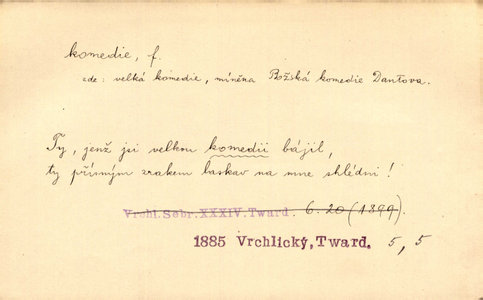 komedie, f.
zde: velká komedie, míněna Božská komedie Dantova.
Ty, jenž jsi velkou komedii bájil,
ty přísným zrakem laskav na mne shlédni!
Vrchl. Sebr. XXXIV. Tward. 6. 20 (1899).
1885 Vrchlický, Tward. 5, 5